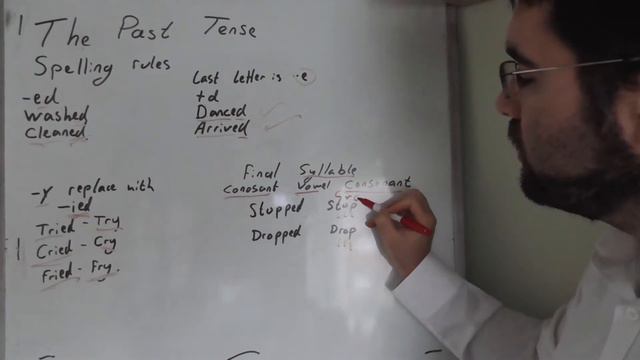 The Past Tense
Spelling rules
-ed
Washed
Cleaned
Last Letter is -e
+d
Danced
Arrived
-y replace with
-ied
Tried - Try
Cried - Cry
Fried - Fry.
Final Syllable
conosant vowel consonant
Stopped Stop
Dropped Drop